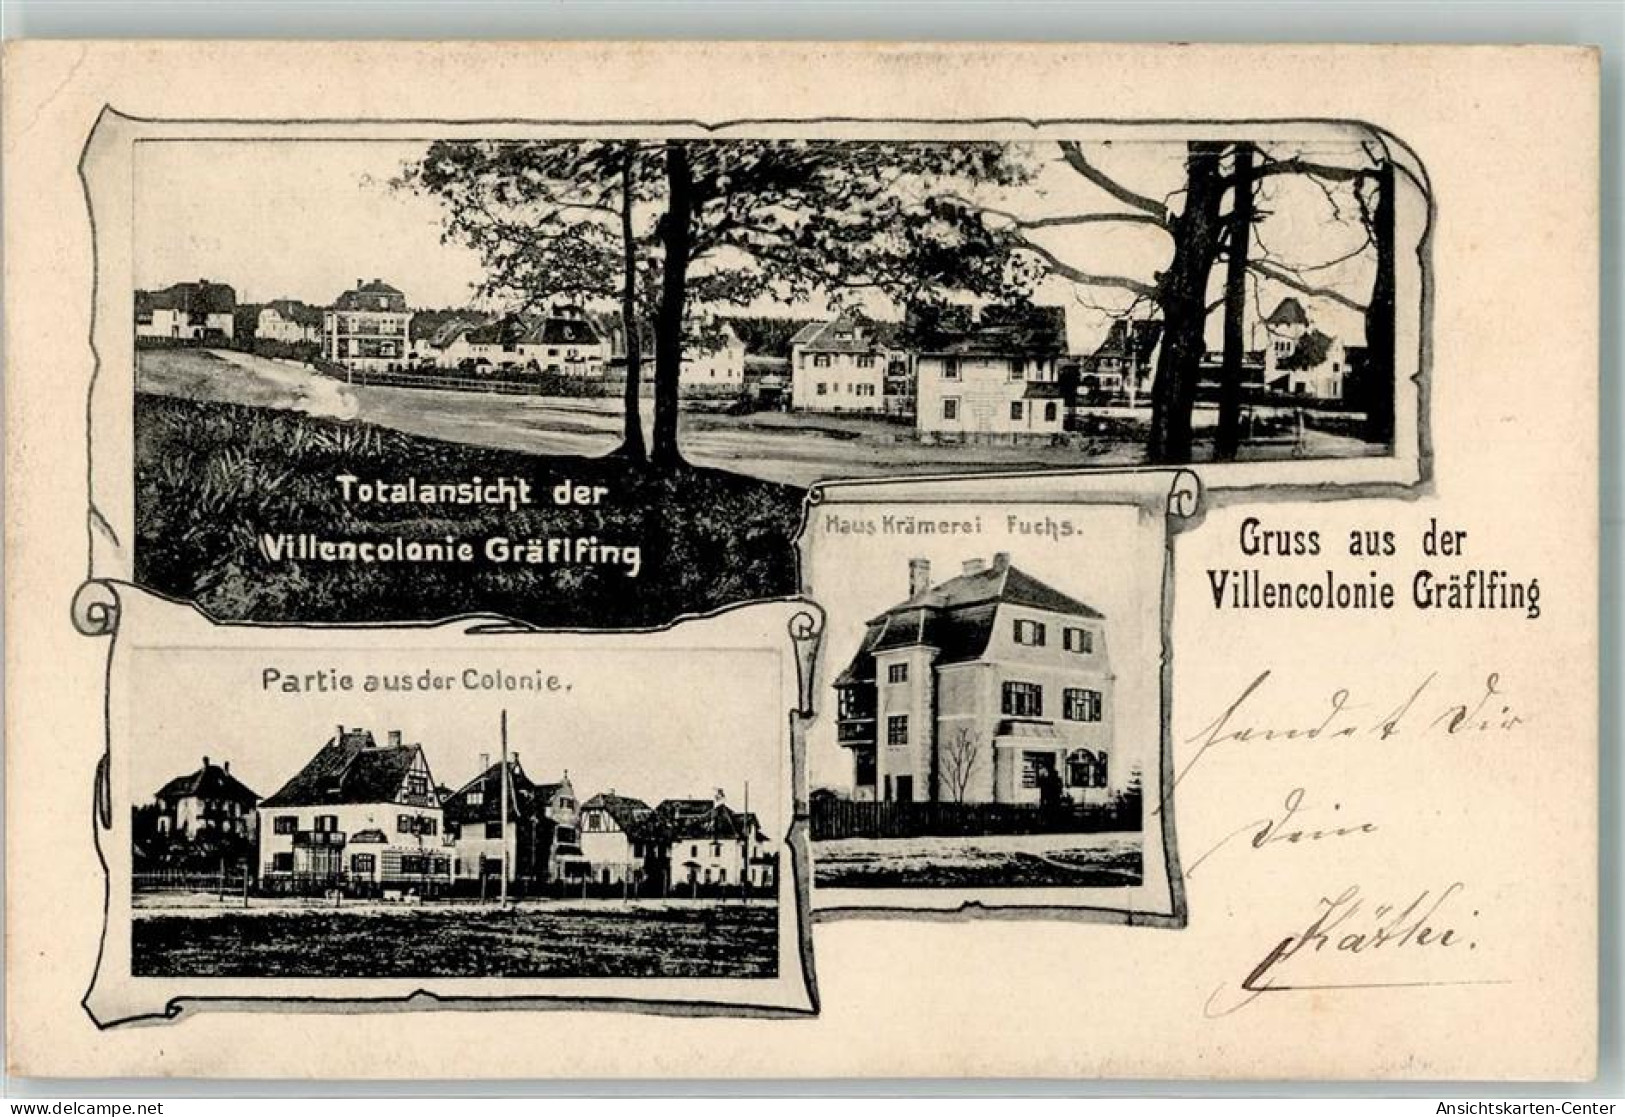 Totalansicht der
Villencolonie Gräflfing
Haus Krämerei Fuchs.
Gruss aus der
Villencolonie Gräflfing
Partie aus der Colonie.
sendet Dir
Dein
delcampe.net
Ansichtskarten-Center